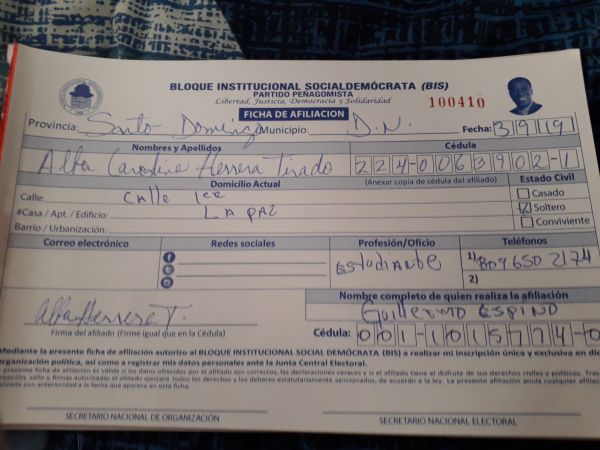 BLOQUE INSTITUCIONAL SOCIALDEMÓCRATA (BIS)
PARTIDO PEÑAGOMISTA
Libertad, Justicia, Democracia y Solidaridad
FICHA DE AFILIACION
100410
Provincia: Snto Domingo Municipio: D.N. Fecha: 3 9 19
Nombres y Apellidos Cédula
Alba Carolina Herrera Tirado 224-0063902-1
Domicilio Actual (Anexar copia de cédula del afiliado) Estado Civil
Calle: Calle 1ee Casado
#Casa / Apt. / Edificio: LA PAZ Soltero
Barrio / Urbanización: Conviviente
Correo electrónico Redes sociales Profesión/Oficio Teléfonos
Estudiante 1) 809 650 2174
2)
Nombre completo de quien realiza la afiliación
Alba Herrera T. Guillermo ESPINO
Firma del afiliado (Firme igual que en la Cédula) Cédula: 001-1015774-0
Mediante la presente ficha de afiliación autorizo al BLOQUE INSTITUCIONAL SOCIAL DEMÓCRATA (BIS) a realizar mi inscripción única y exclusiva en dic
organización política, así como a registrar mis datos personales ante la Junta Central Electoral.
presente ficha de afiliación es válida si los datos ofrecidos por el afiliado son correctos, las declaraciones veraces y si el afiliado tiene el disfrute de sus derechos civiles y políticos. Tras
cripción, sello y firmas autorizadas el afiliado ejercerá todos los derechos y los deberes estatutariamente sancionados, de acuerdo a la ley. La presente afiliación anula cualquier afiliac
lizada con anterioridad a la fecha que aparece en esta ficha.
SECRETARIO NACIONAL DE ORGANIZACIÓN SECRETARIO NACIONAL ELECTORAL